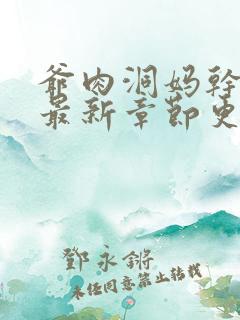 爺肉洞妈幹
最新章節史
鄧永鏘
未经同意禁止转载